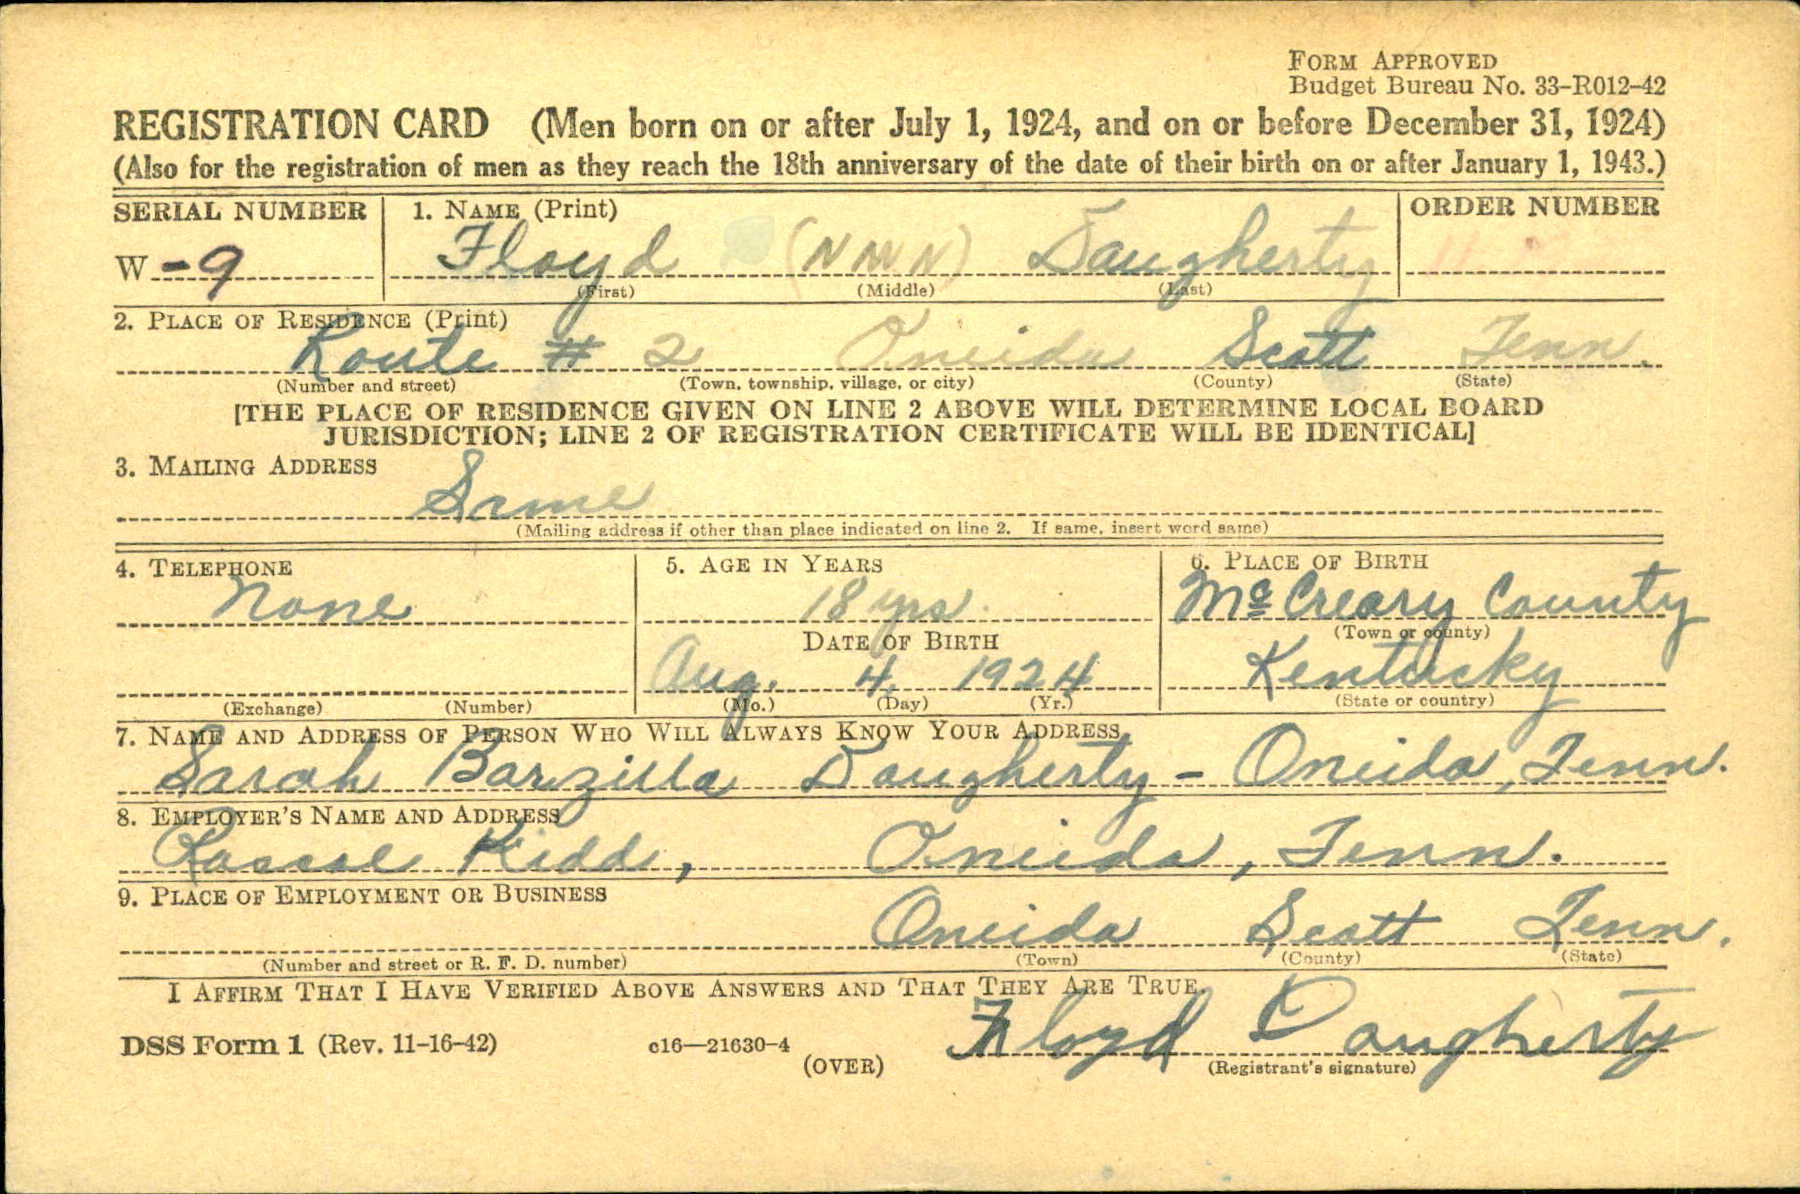 FORM APPROVED
Budget Bureau No. 33-R012-42
REGISTRATION CARD (Men born on or after July 1, 1924, and on or before December 31, 1924)
(Also for the registration of men as they reach the 18th anniversary of the date of their birth on or after January 1, 1943.)
SERIAL NUMBER 1. NAME (Print) ORDER NUMBER
W -9 Floyd (NMN) Daugherty
(First) (Middle) (Last)
2. PLACE OF RESIDENCE (Print)
Route # 2 Oneida Scott Tenn.
(Number and street) (Town, township, village, or city) (County) (State)
[THE PLACE OF RESIDENCE GIVEN ON LINE 2 ABOVE WILL DETERMINE LOCAL BOARD
JURISDICTION; LINE 2 OF REGISTRATION CERTIFICATE WILL BE IDENTICAL]
3. MAILING ADDRESS
Same
(Mailing address if other than place indicated on line 2. If same, insert word same)
4. TELEPHONE 5. AGE IN YEARS 6. PLACE OF BIRTH
None 18 yrs. McCreary County
DATE OF BIRTH (Town or county)
Aug. 4, 1924 Kentucky
(Exchange) (Number) (Mo.) (Day) (Yr.) (State or country)
7. NAME AND ADDRESS OF PERSON WHO WILL ALWAYS KNOW YOUR ADDRESS
Sarah Barzilla Daugherty - Oneida, Tenn.
8. EMPLOYER'S NAME AND ADDRESS
Roscoe Kidd, Oneida, Tenn.
9. PLACE OF EMPLOYMENT OR BUSINESS
Oneida Scott Tenn.
(Number and street or R. F. D. number) (Town) (County) (State)
I AFFIRM THAT I HAVE VERIFIED ABOVE ANSWERS AND THAT THEY ARE TRUE.
Floyd Daugherty
DSS Form 1 (Rev. 11-16-42) c16—21630-4 (OVER) (Registrant's signature)